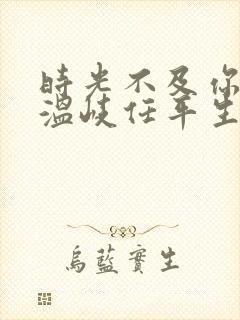 時光不及你
溫岐任平生
烏藍寶生